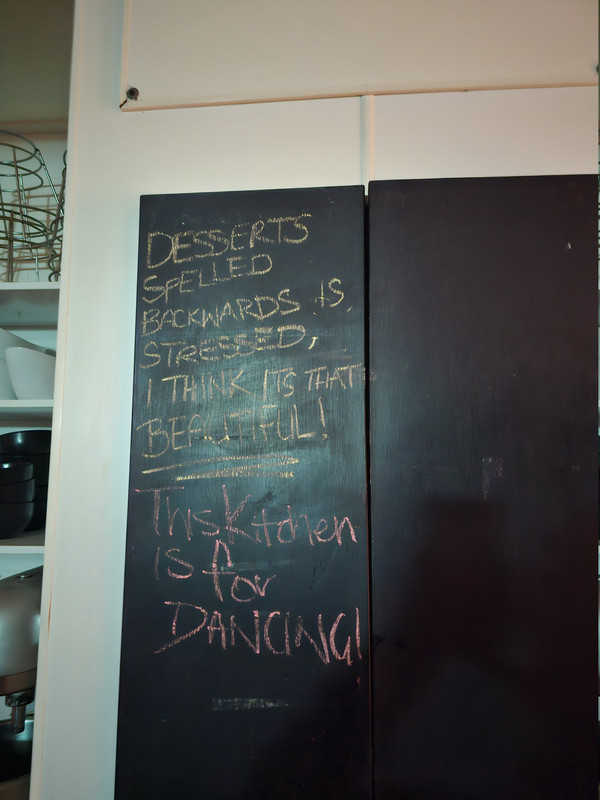 DESSERTS
SPELLED
BACKWARDS IS
STRESSED,
I THINK ITS THAT
BEAUTIFUL!
This Kitchen
IS for
DANCING!